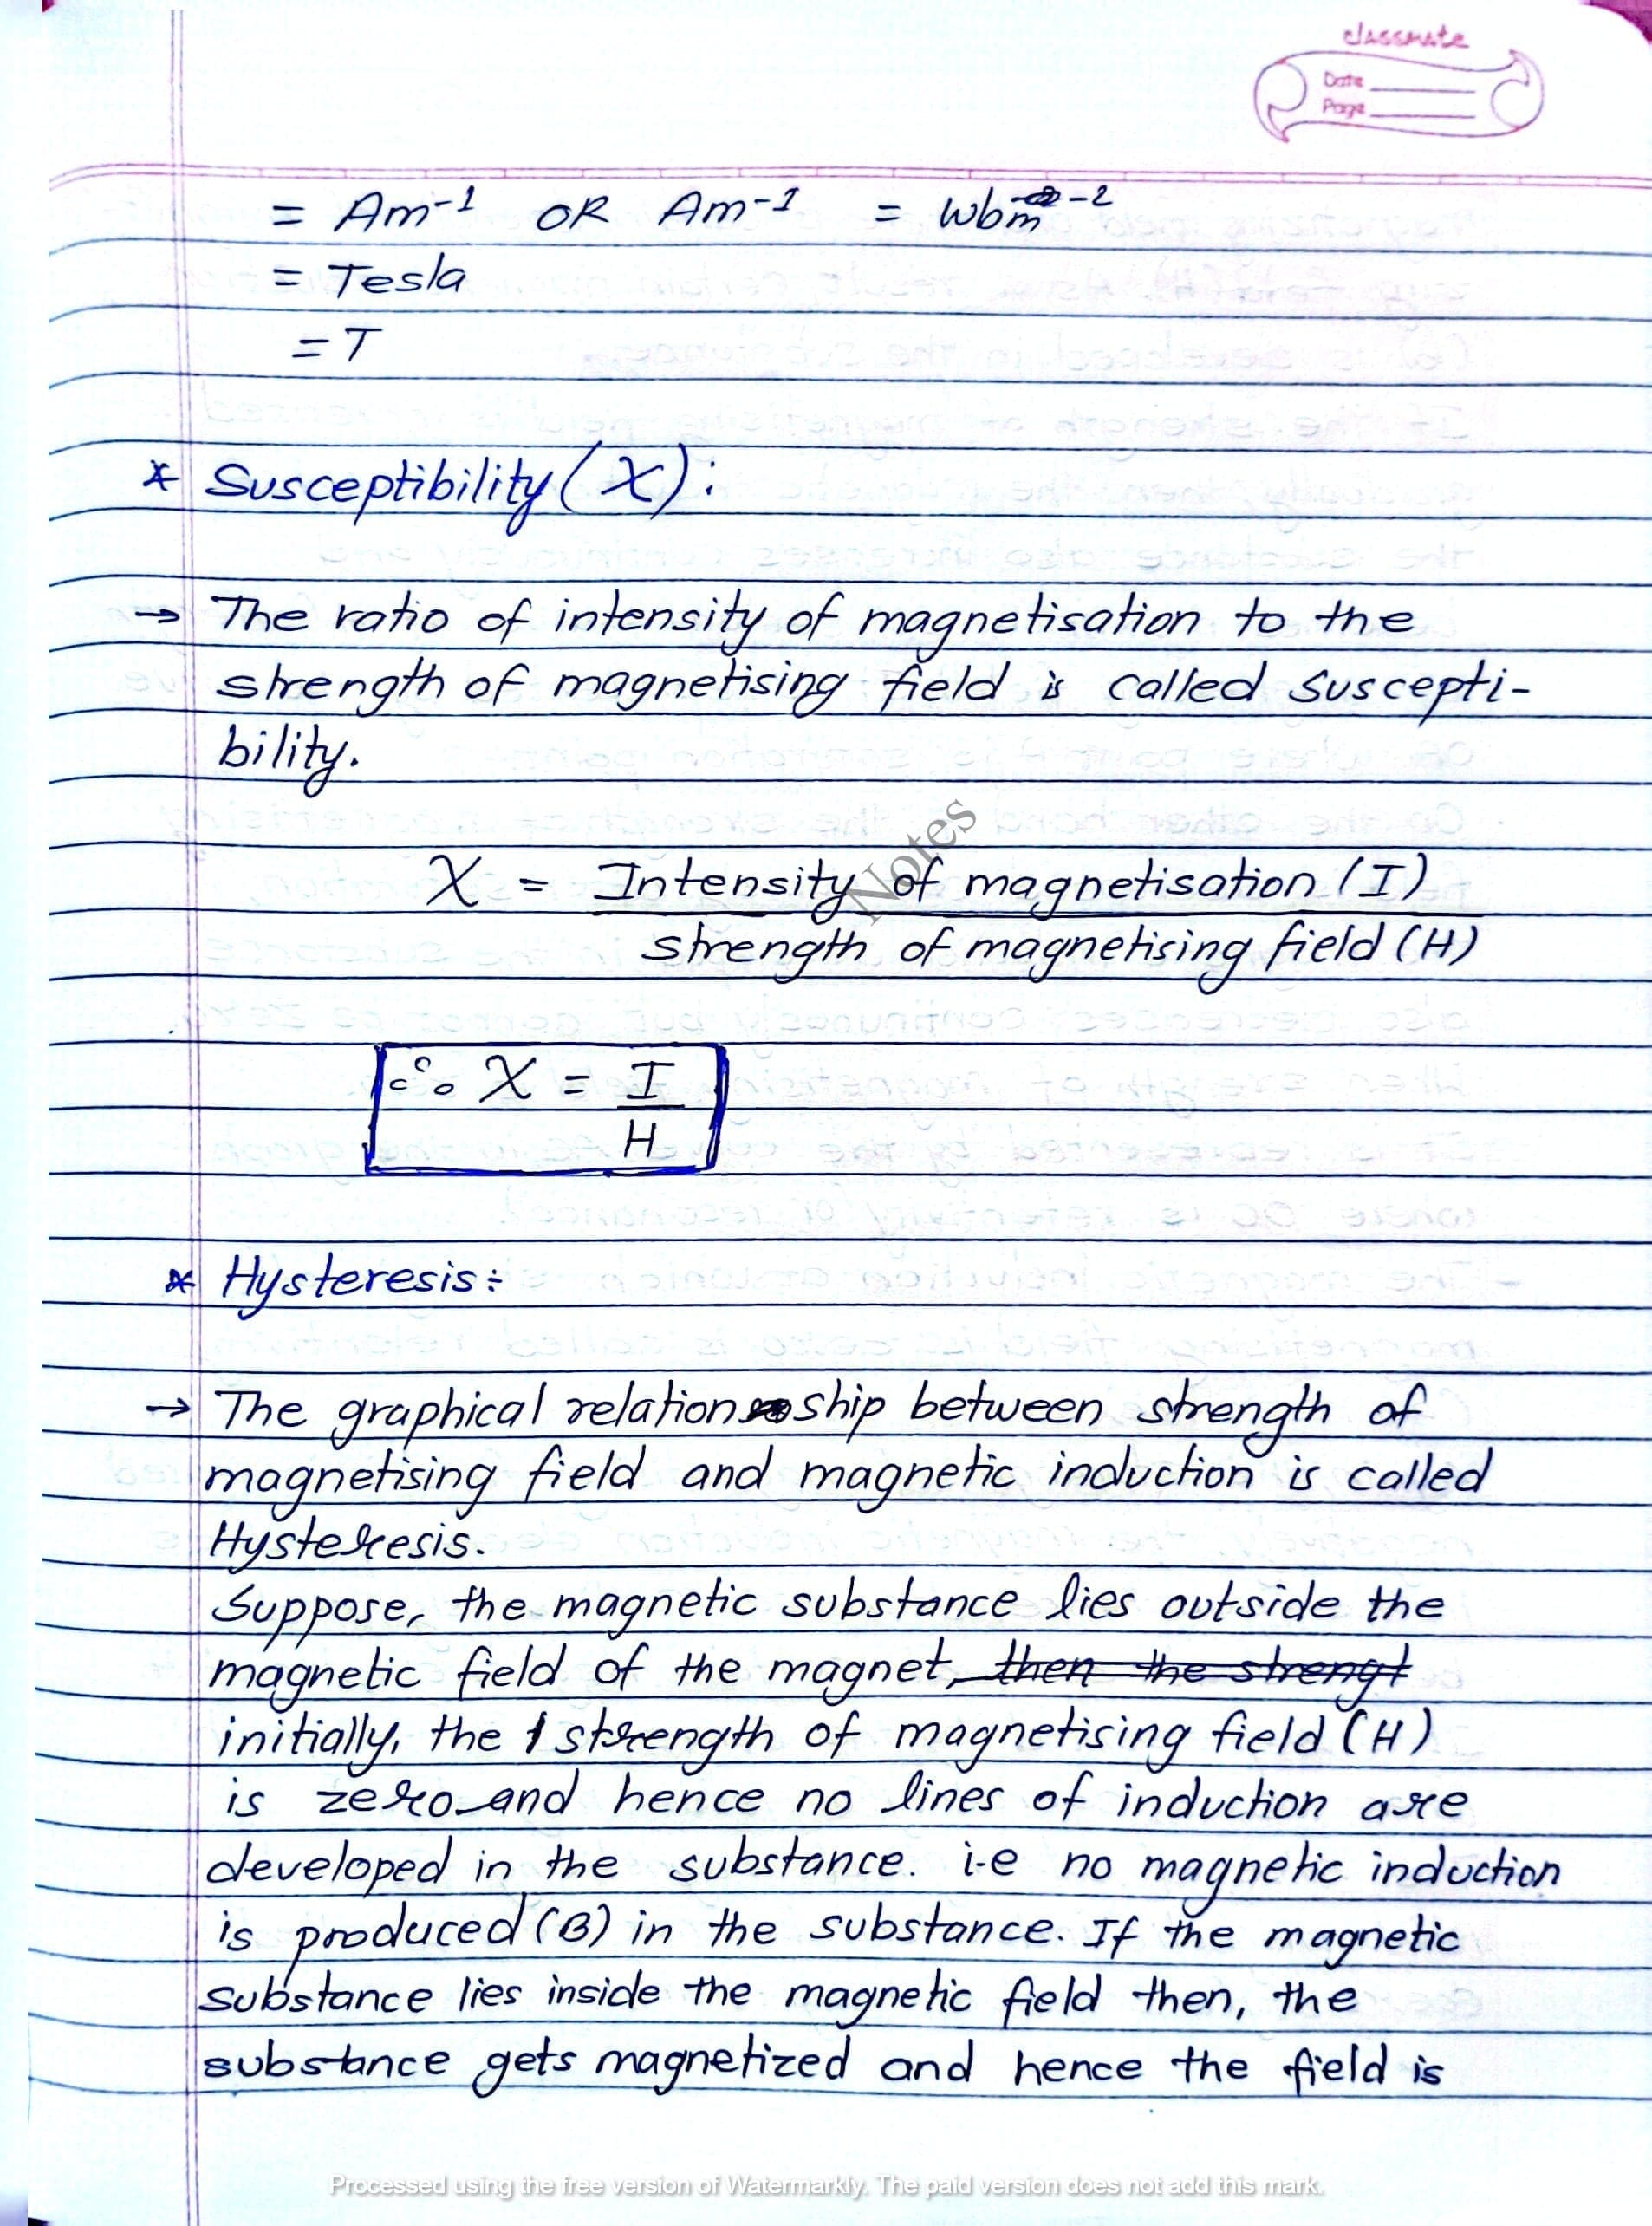 classmate
Date
Page
= Am⁻¹ OR Am⁻¹ = Wbm⁻²
= Tesla
= T
* Susceptibility (χ):
→ The ratio of intensity of magnetisation to the
strength of magnetising field is called suscepti-
bility.
Notes
χ = Intensity of magnetisation (I)
strength of magnetising field (H)
∴ χ = I
H
* Hysteresis:
→ The graphical relationship between strength of
magnetising field and magnetic induction is called
Hysteresis.
Suppose, the magnetic substance lies outside the
magnetic field of the magnet, then the strengt
initially, the strength of magnetising field (H)
is zero and hence no lines of induction are
developed in the substance. i.e no magnetic induction
is produced (B) in the substance. If the magnetic
substance lies inside the magnetic field then, the
substance gets magnetized and hence the field is
Processed using the free version of Watermarkly. The paid version does not add this mark.